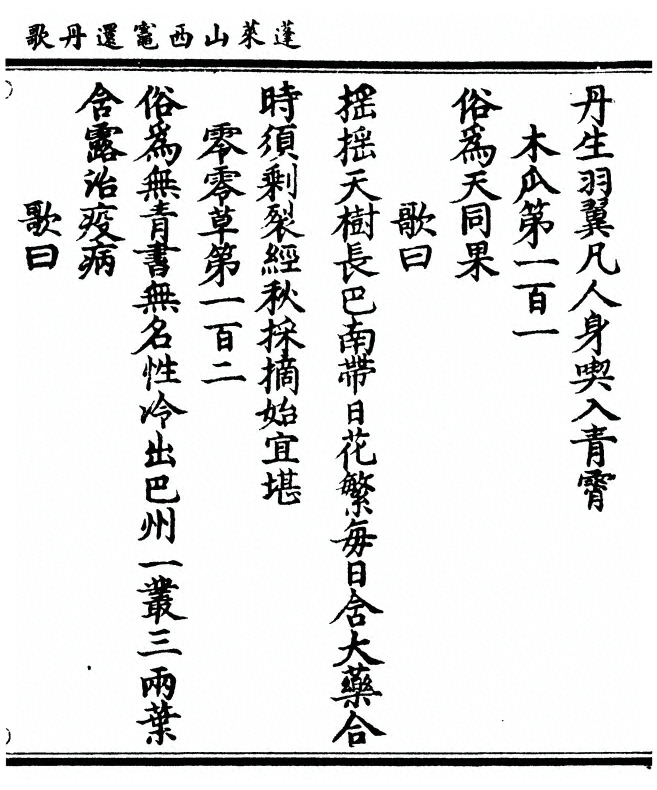 蓬萊山西竈還丹歌
丹生羽翼凡人身喫入青霄
木瓜第一百一
俗爲天同果
歌曰
揺揺天樹長巴南帶日花繁每日含大藥合
時須剩裂經秋採摘始宜堪
零零草第一百二
俗爲無青書無名性冷出巴州一叢三兩葉
含露治疫病
歌曰